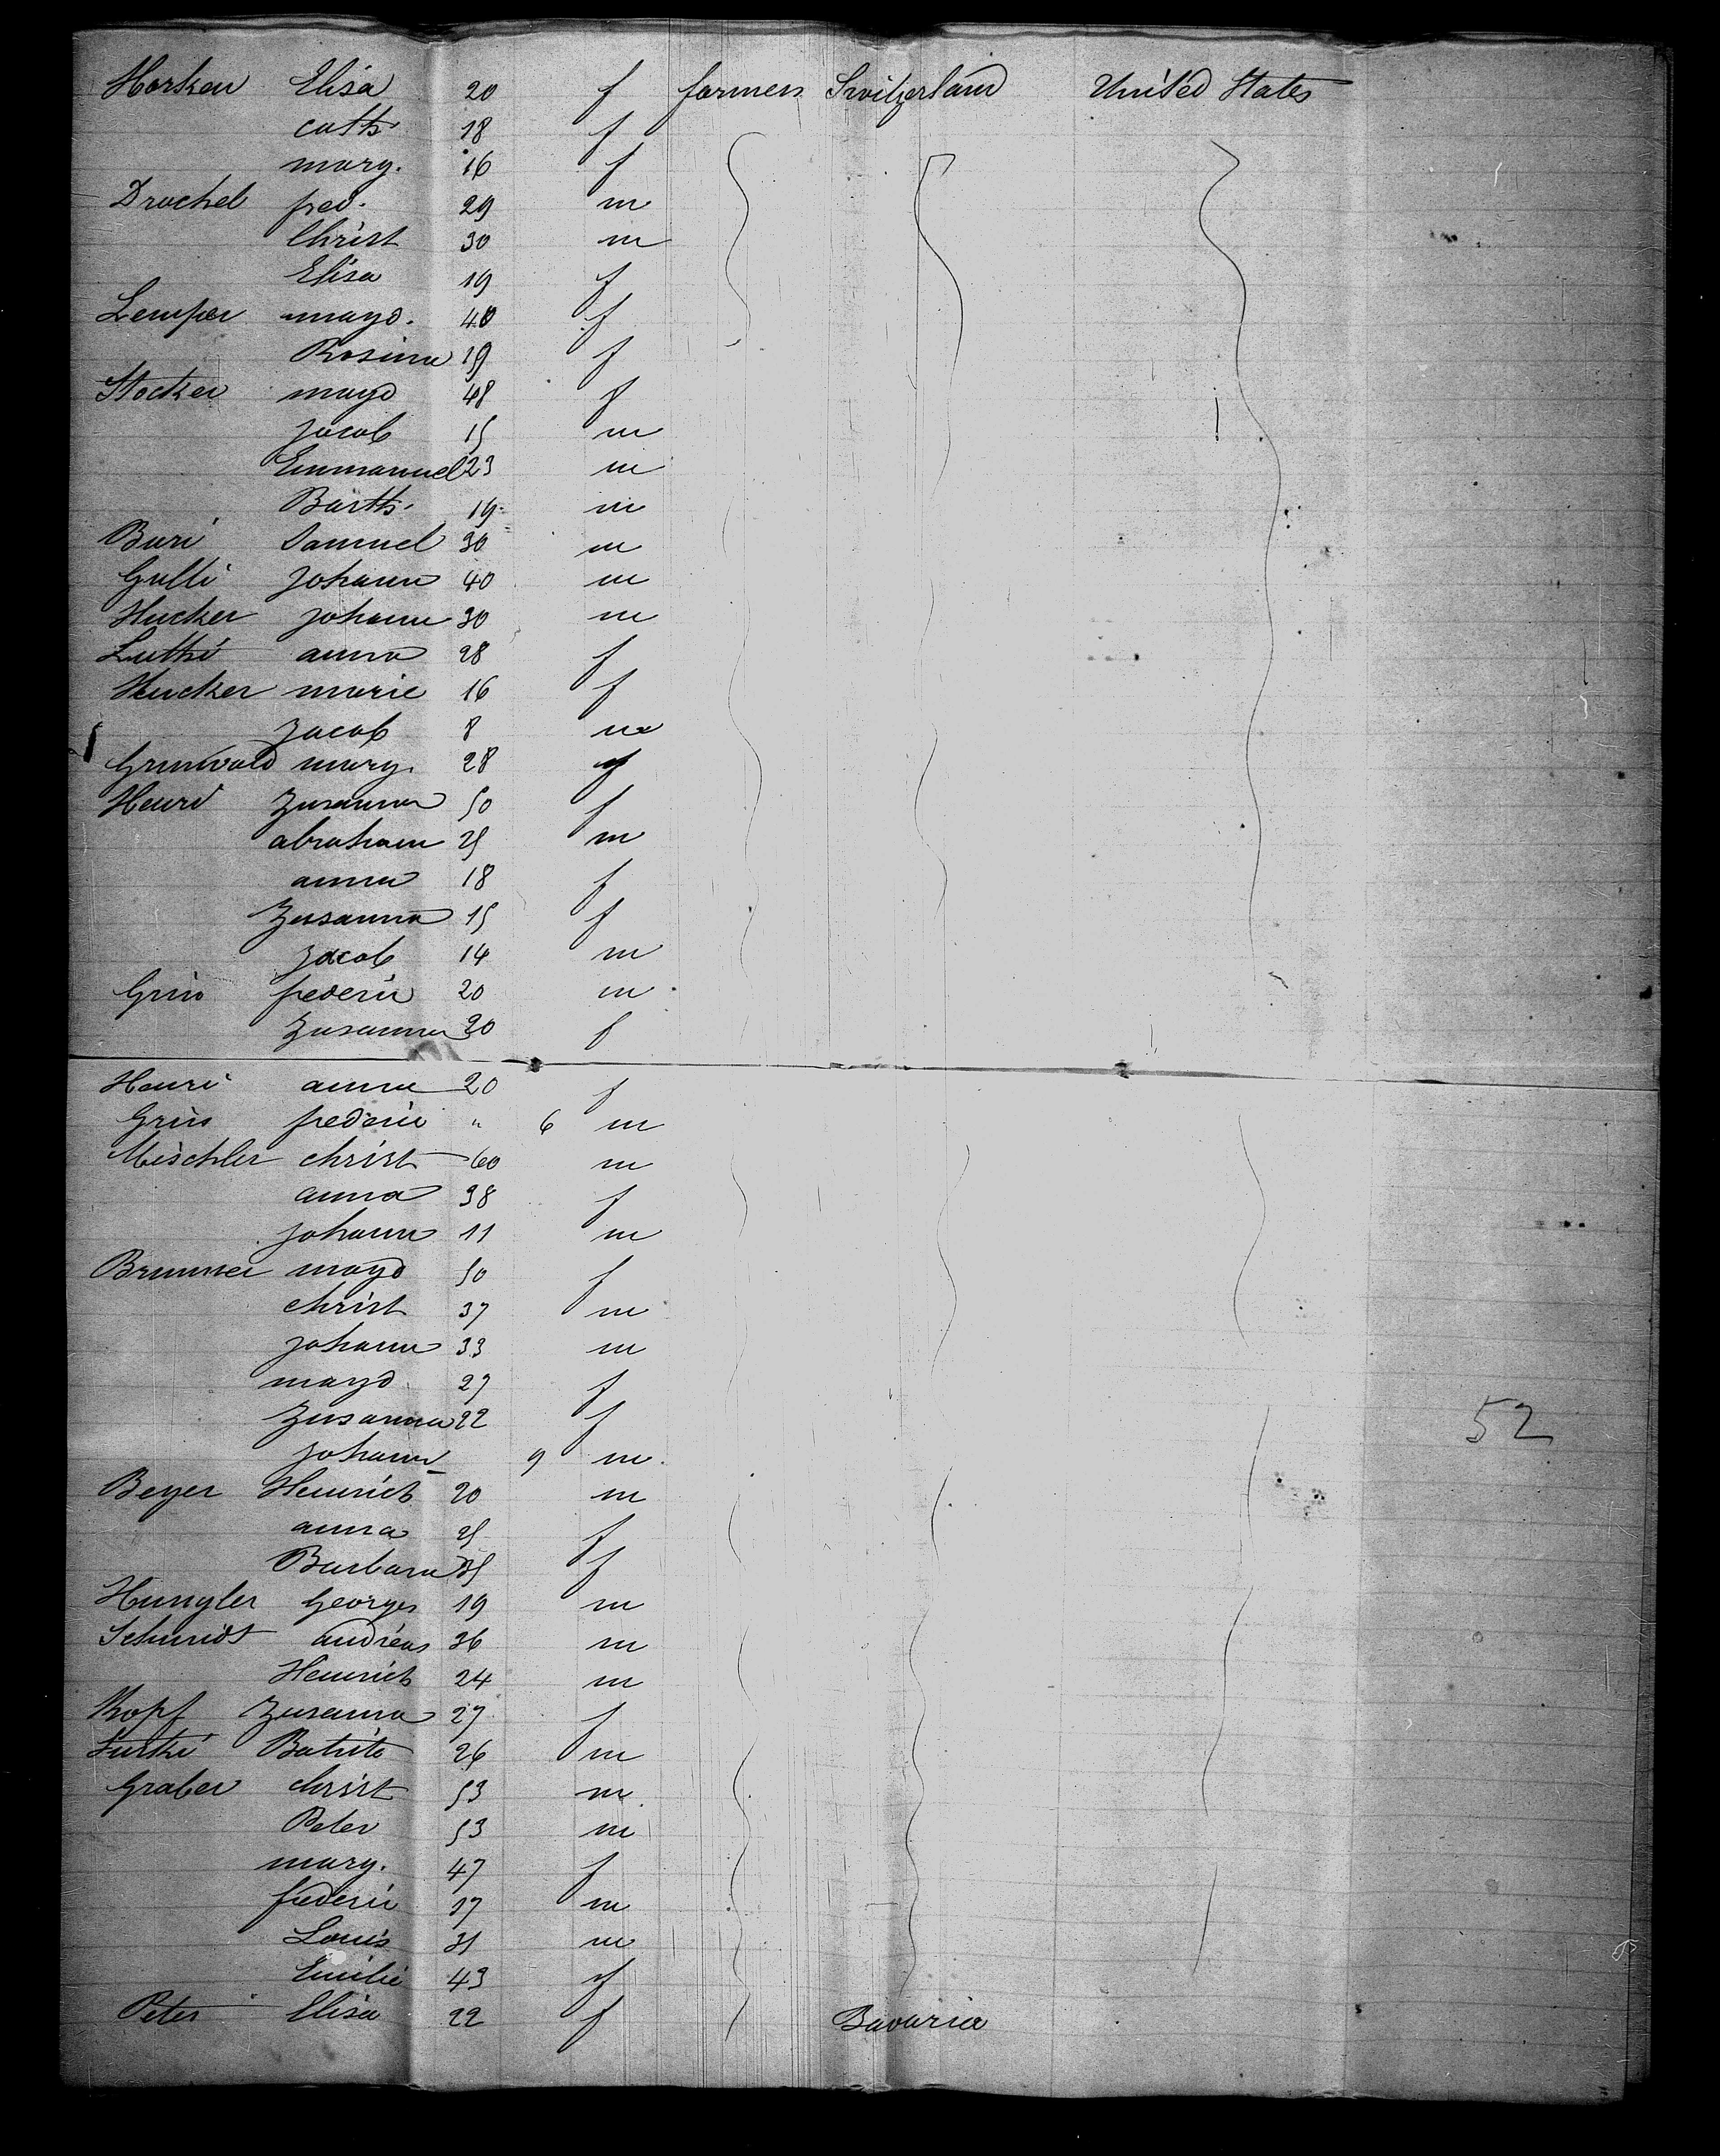 Horsken Elisa 20 f farmers Switzerland United States
cath 18 f
mary. 16 f
Drachel fred. 29 m
Christ 30 m
Elisa 19 f
Lemper magd. 40 f
Rosina 19 f
Stocker magd 48 f
jacob 15 m
Emmanuel 23 m
Barth. 19 m
Buri Samuel 30 m
Gulli Johann 40 m
Hucker johann 30 m
Luthi anna 28 f
Hucker marie 16 f
jacob 8 m
Grunwald mary. 28 f
Henri Zusanna 50 f
abraham 25 m
anna 18 f
Zusanna 15 f
jacob 14 m
Grin frederic 20 m
Zusanna 20 f
Henri anna 20 f
Grin frederic " 6 m
Mischler christ 60 m
anna 38 f
johann 11 m
Brunner magd 50 f
christ 37 m
johann 33 m
magd 27 f
Zusanna 22 f
johann 9 m
52
Beyer Heinrich 20 m
anna 25 f
Barbara 25 f
Hungler Georges 19 m
Schmidt andréas 36 m
Heinrich 24 m
Kopf Zusanna 27 f
Luthi 26 m
Graber christ 53 m
Peter 53 m
mary. 47 f
frederic 17 m
Louis 31 m
Emilie 43 f
Peter Elisa 22 f Bavaria